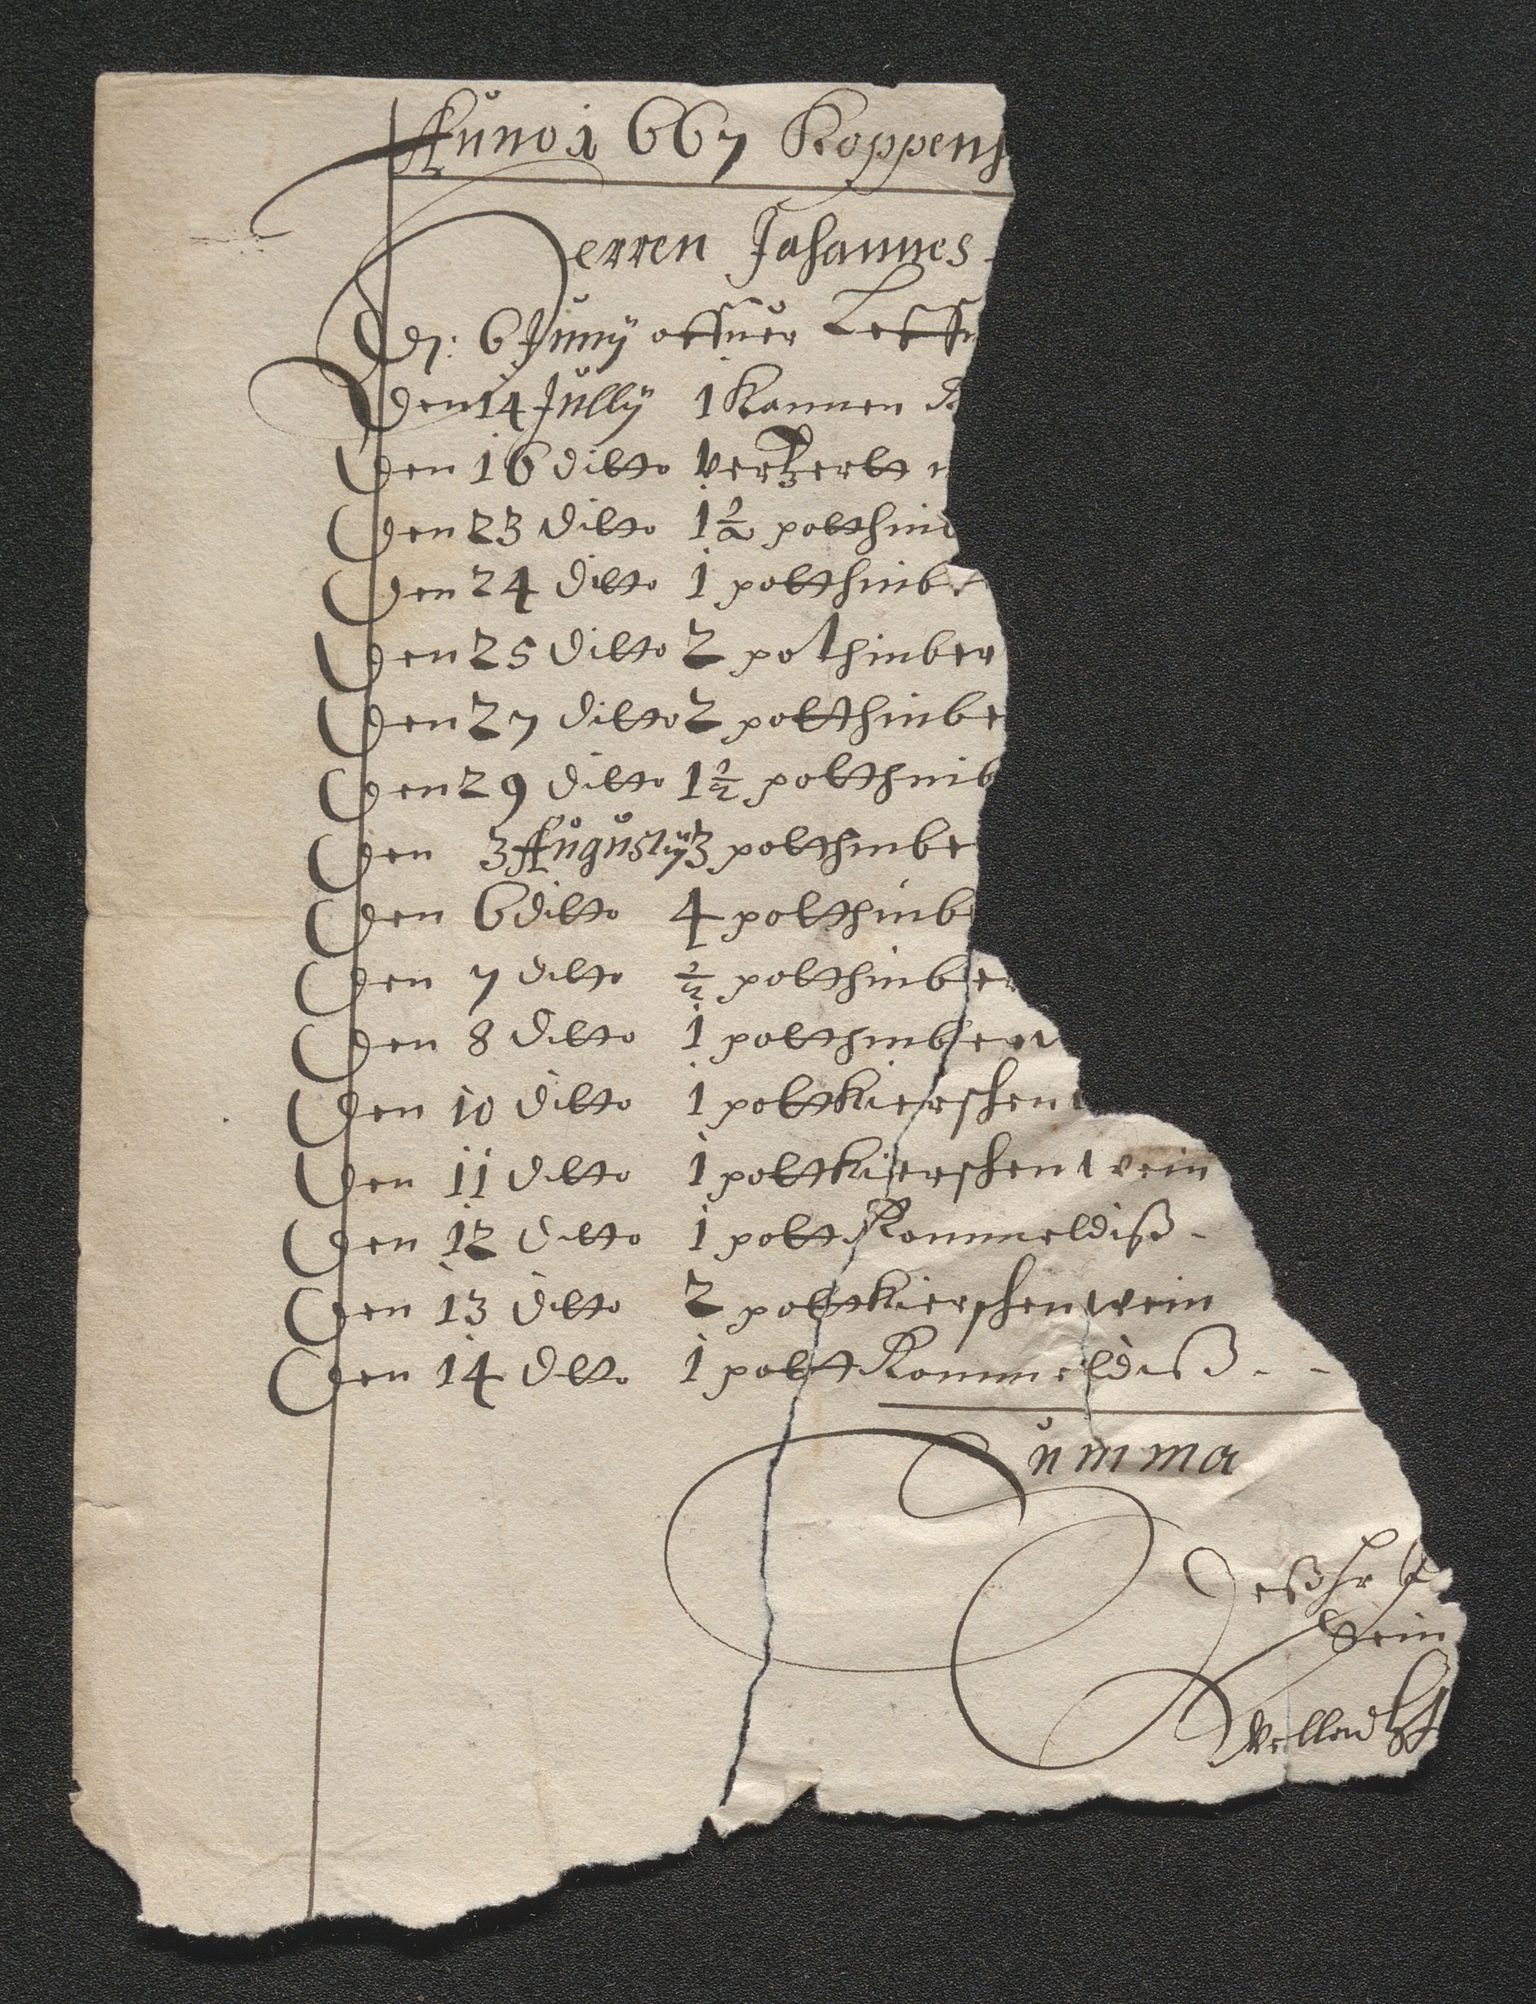 Anno 1667 Koppenh
Herren Johannes
Dz: 6 Juny
den 14 Jully 1 Kannen
den 16 ditto vertzertt
den 23 ditto 1½ pott hin
den 24 ditto 1 pott hinbe
den 25 ditto 2 pott hinber
den 27 ditto 2 pott hinbe
den 29 ditto 1½ pott hinb
den 3 Augustij 3 pott hinbe
den 6 ditto 4 pott hinb
den 7 ditto ½ pott hinber
den 8 ditto 1 pott hinber
den 10 ditto 1 pott kierschen
den 11 ditto 1 pott kierschen wein
den 12 ditto 1 pott Kommeldiß -
den 13 ditto 2 pott kierschen wein
den 14 ditto 1 pott Kommeldiß - -
Summa